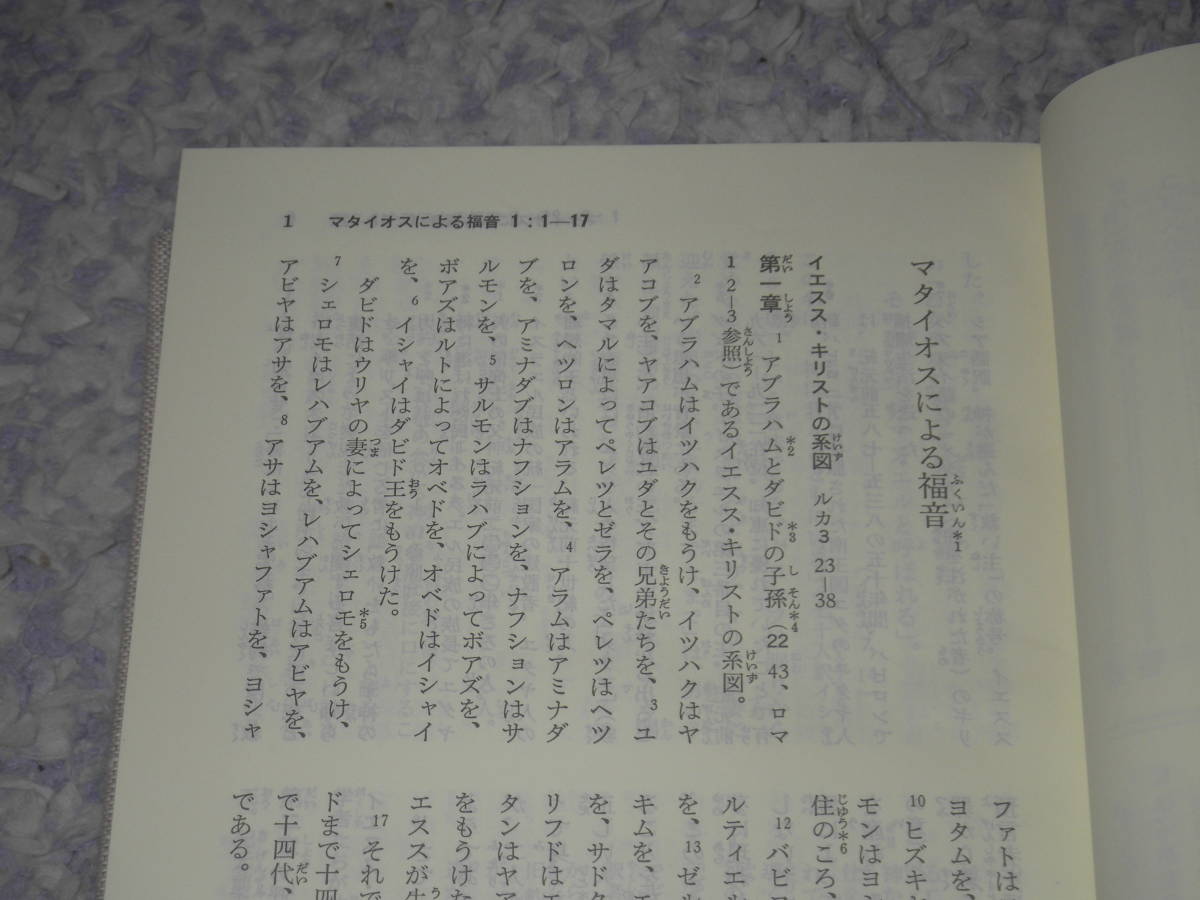 1 マタイオスによる福音 1:1―17
マタイオスによる福音*1
イエスス・キリストの系図 ルカ3 23―38
第一章 1 アブラハム*2とダビド*3の子孫*4(22 43、ロマ
1・2―3参照)であるイエスス・キリストの系図。
2 アブラハムはイツハクをもうけ、イツハクはヤ
アコブを、ヤアコブはユダとその兄弟たちを、3 ユ
ダはタマルによってペレツとゼラを、ペレツはヘツ
ロンを、ヘツロンはアラムを、4 アラムはアミナダ
ブを、アミナダブはナフションを、ナフションはサ
ルモンを、5 サルモンはラハブによってボアズを、
ボアズはルトによってオベドを、オベドはイシャイ
を、6 イシャイはダビド王をもうけた。
ダビドはウリヤの妻によってシェロモ*5をもうけ、
7 シェロモはレハブアムを、レハブアムはアビヤを、
アビヤはアサを、8 アサはヨシャファトを、ヨシャ
ファトは
ヨタムを、
10 ヒズキ
モンはヨシ
住*6のころ、
12 バビ
ルティエル
を、13 ゼル
キムを、エ
を、サドク
リフドはエ
タンはヤア
をもうけた
エススが生
17 それで
ドまで十四
で十四代、
である。